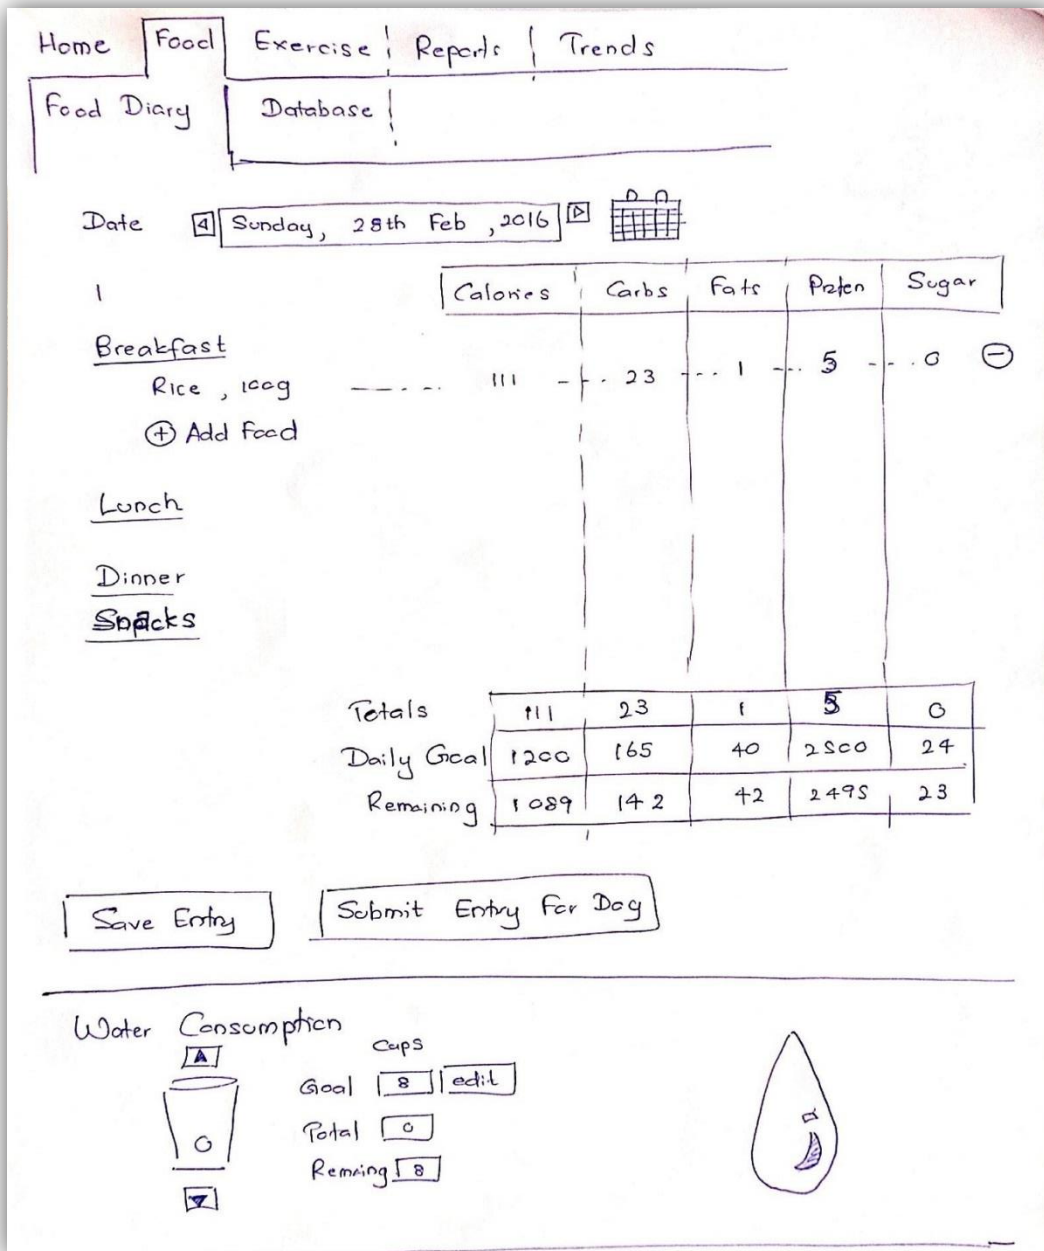 Home Food Exercise Reports Trends
Food Diary Database
Date Sunday, 28th Feb, 2016
Calories Carbs Fats Proten Sugar
Breakfast
Rice, 100g 111 23 1 5 0
Add Food
Lunch
Dinner
Snacks
Totals 111 23 1 5 0
Daily Goal 1200 165 40 2500 24
Remaining 1089 142 42 2495 23
Save Entry Submit Entry For Day
Water Consumption
Cups
Goal 8 edit
Total 0
0
Remaing 8